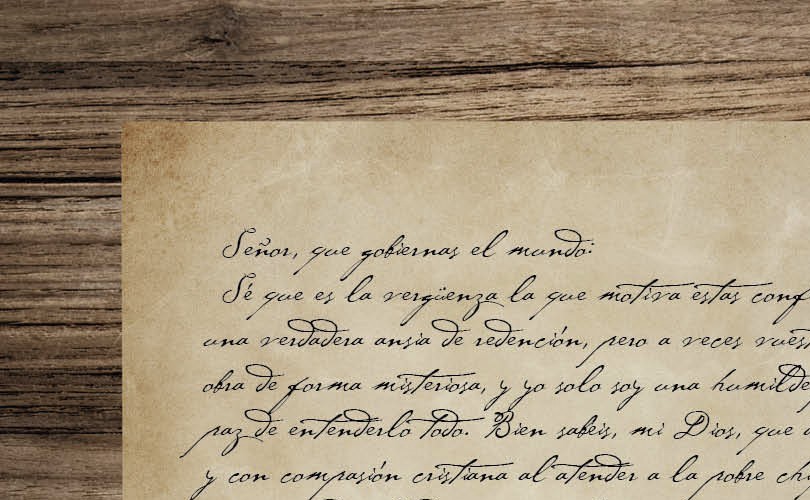 Señor, que gobiernas el mundo:
Sé que es la vergüenza la que motiva estas conf
una verdadera ansia de redención, pero a veces vuest
obra de forma misteriosa, y yo solo soy una humilde
paz de entenderlo todo. Bien sabéis, mi Dios, que a
y con compasión cristiana al atender a la pobre ch